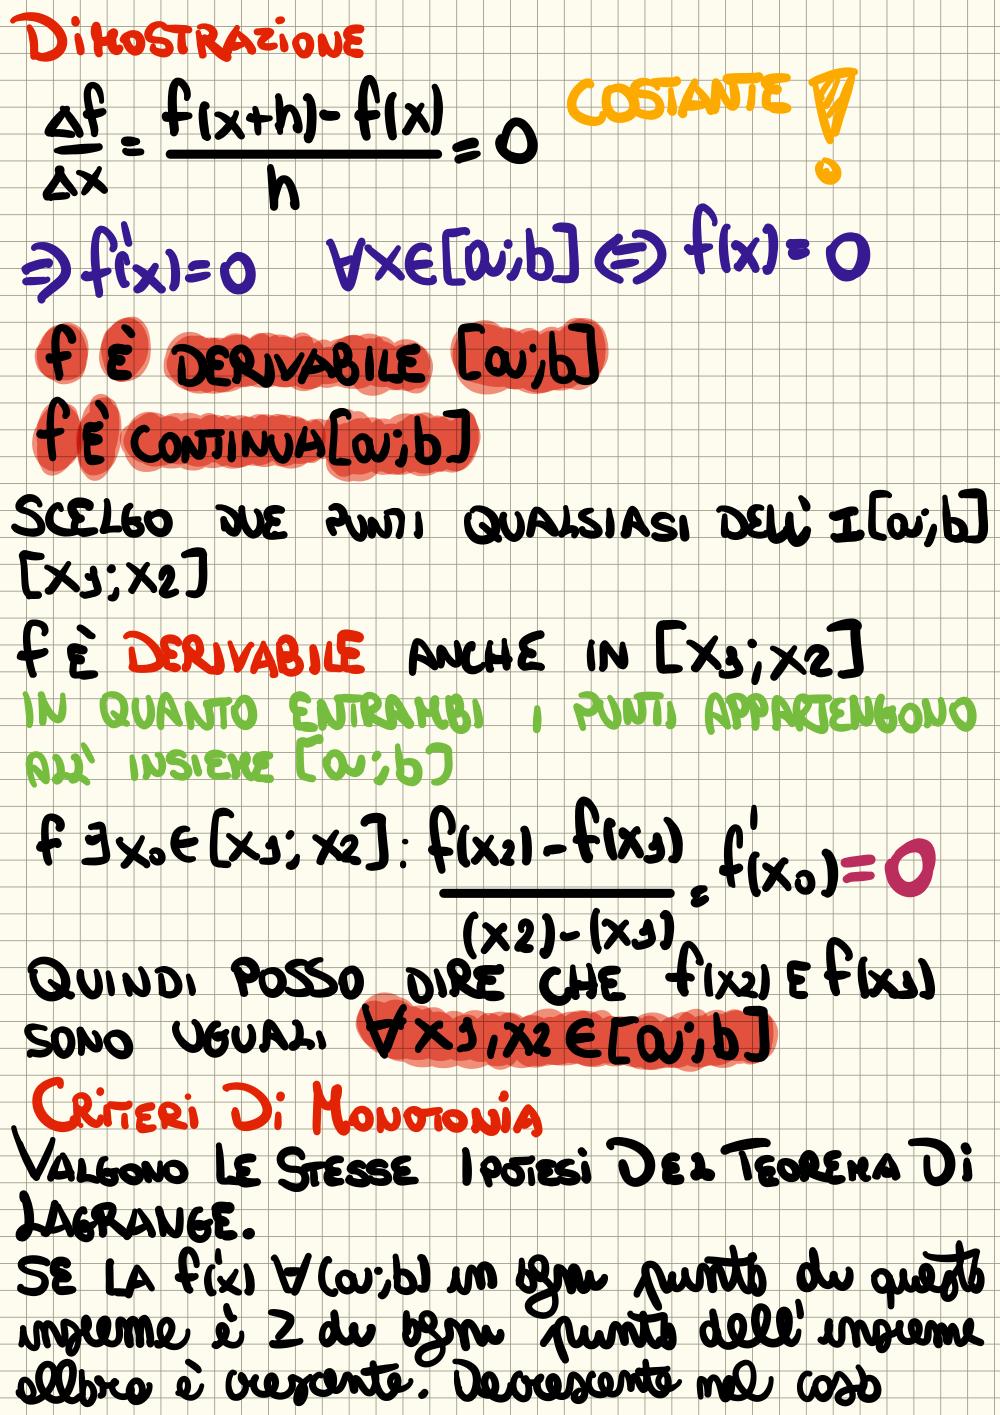 DIMOSTRAZIONE
Δf/Δx = (f(x+h) - f(x))/h = 0 COSTANTE !
⇒ f'(x) = 0 ∀x∈[a;b] ⇔ f(x) = 0
f È DERIVABILE [a;b]
f È CONTINUA [a;b]
SCELGO DUE PUNTI QUALSIASI DELL' I[a;b]
[x1;x2]
f È DERIVABILE ANCHE IN [x1;x2]
IN QUANTO ENTRAMBI I PUNTI APPARTENGONO
ALL' INSIEME [a;b]
f ∃x0∈[x1;x2]: (f(x2) - f(x1))/((x2)-(x1)) = f'(x0) = 0
QUINDI POSSO DIRE CHE f(x2) E f(x1)
SONO UGUALI ∀x1,x2∈[a;b]
CRITERI DI MONOTONIA
VALGONO LE STESSE IPOTESI DEL TEOREMA DI
LAGRANGE.
SE LA f'(x) ∀(a;b) in ogni punto di questo
insieme è 2 di ogni punto dell' insieme
allora è crescente. Decrescente nel caso